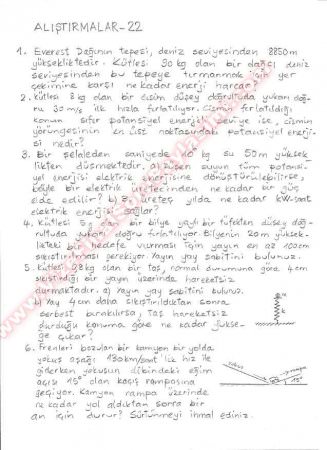 ALIŞTIRMALAR-22
1. Everest Dağının tepesi, deniz seviyesinden 8850 m
yüksekliktedir. Kütlesi 90 kg olan bir dağcı deniz
seviyesinden bu tepeye tırmanmak için yer
çekimine karşı ne kadar enerji harcar?
2. Kütlesi 8 kg olan bir cisim düşey doğrultuda yukarı doğ-
ru 30 m/s ilk hızla fırlatılıyor. Cismin fırlatıldığı
konum sıfır potansiyel enerji seviye ise, cismin
yörüngesinin en üst noktasındaki potansiyel enerji-
si nedir?
3. Bir şelaleden saniyede kg su 50 m yüksek-
likten düşmektedir. a) suyun tüm potansi-
yel enerjisi elektrik enerjisine dönüştürülebilirse,
böyle bir elektrik üretecinden ne kadar bir güç
elde edilir? b) Bu üreteç yılda ne kadar kW-saat
elektrik enerjisi sağlar?
4. Kütlesi 5 g bir bilye yaylı bir tüfekten düşey doğ-
rultuda yukarı doğru fırlatılıyor. Bilyenin 20 m yüksek-
likteki bir hedefe vurması için yayın en az 100 cm
sıkıştırılması gerekiyor. Yayın yay sabitini bulunuz.
5. Kütlesi kg olan bir taş, normal durumuna göre 4 cm
sıkıştırdığı bir yayın üzerinde hareketsiz
durmaktadır. a) Yayın yay sabitini bulunuz.
b) Yay 4 cm daha sıkıştırıldıktan sonra
serbest bırakılırsa, taş hareketsiz
durduğu konuma göre ne kadar yükse-
ğe çıkar?
6. Frenleri bozulan bir kamyon bir yolda
yokuş aşağı 130 km/saat lik hız ile
giderken yokuşun dibindeki eğim
açısı 15° olan kaçış rampasına
geçiyor. Kamyon rampa üzerinde
ne kadar yol aldıktan sonra bir
an için durur? Sürtünmeyi ihmal ediniz.
rampa
15°